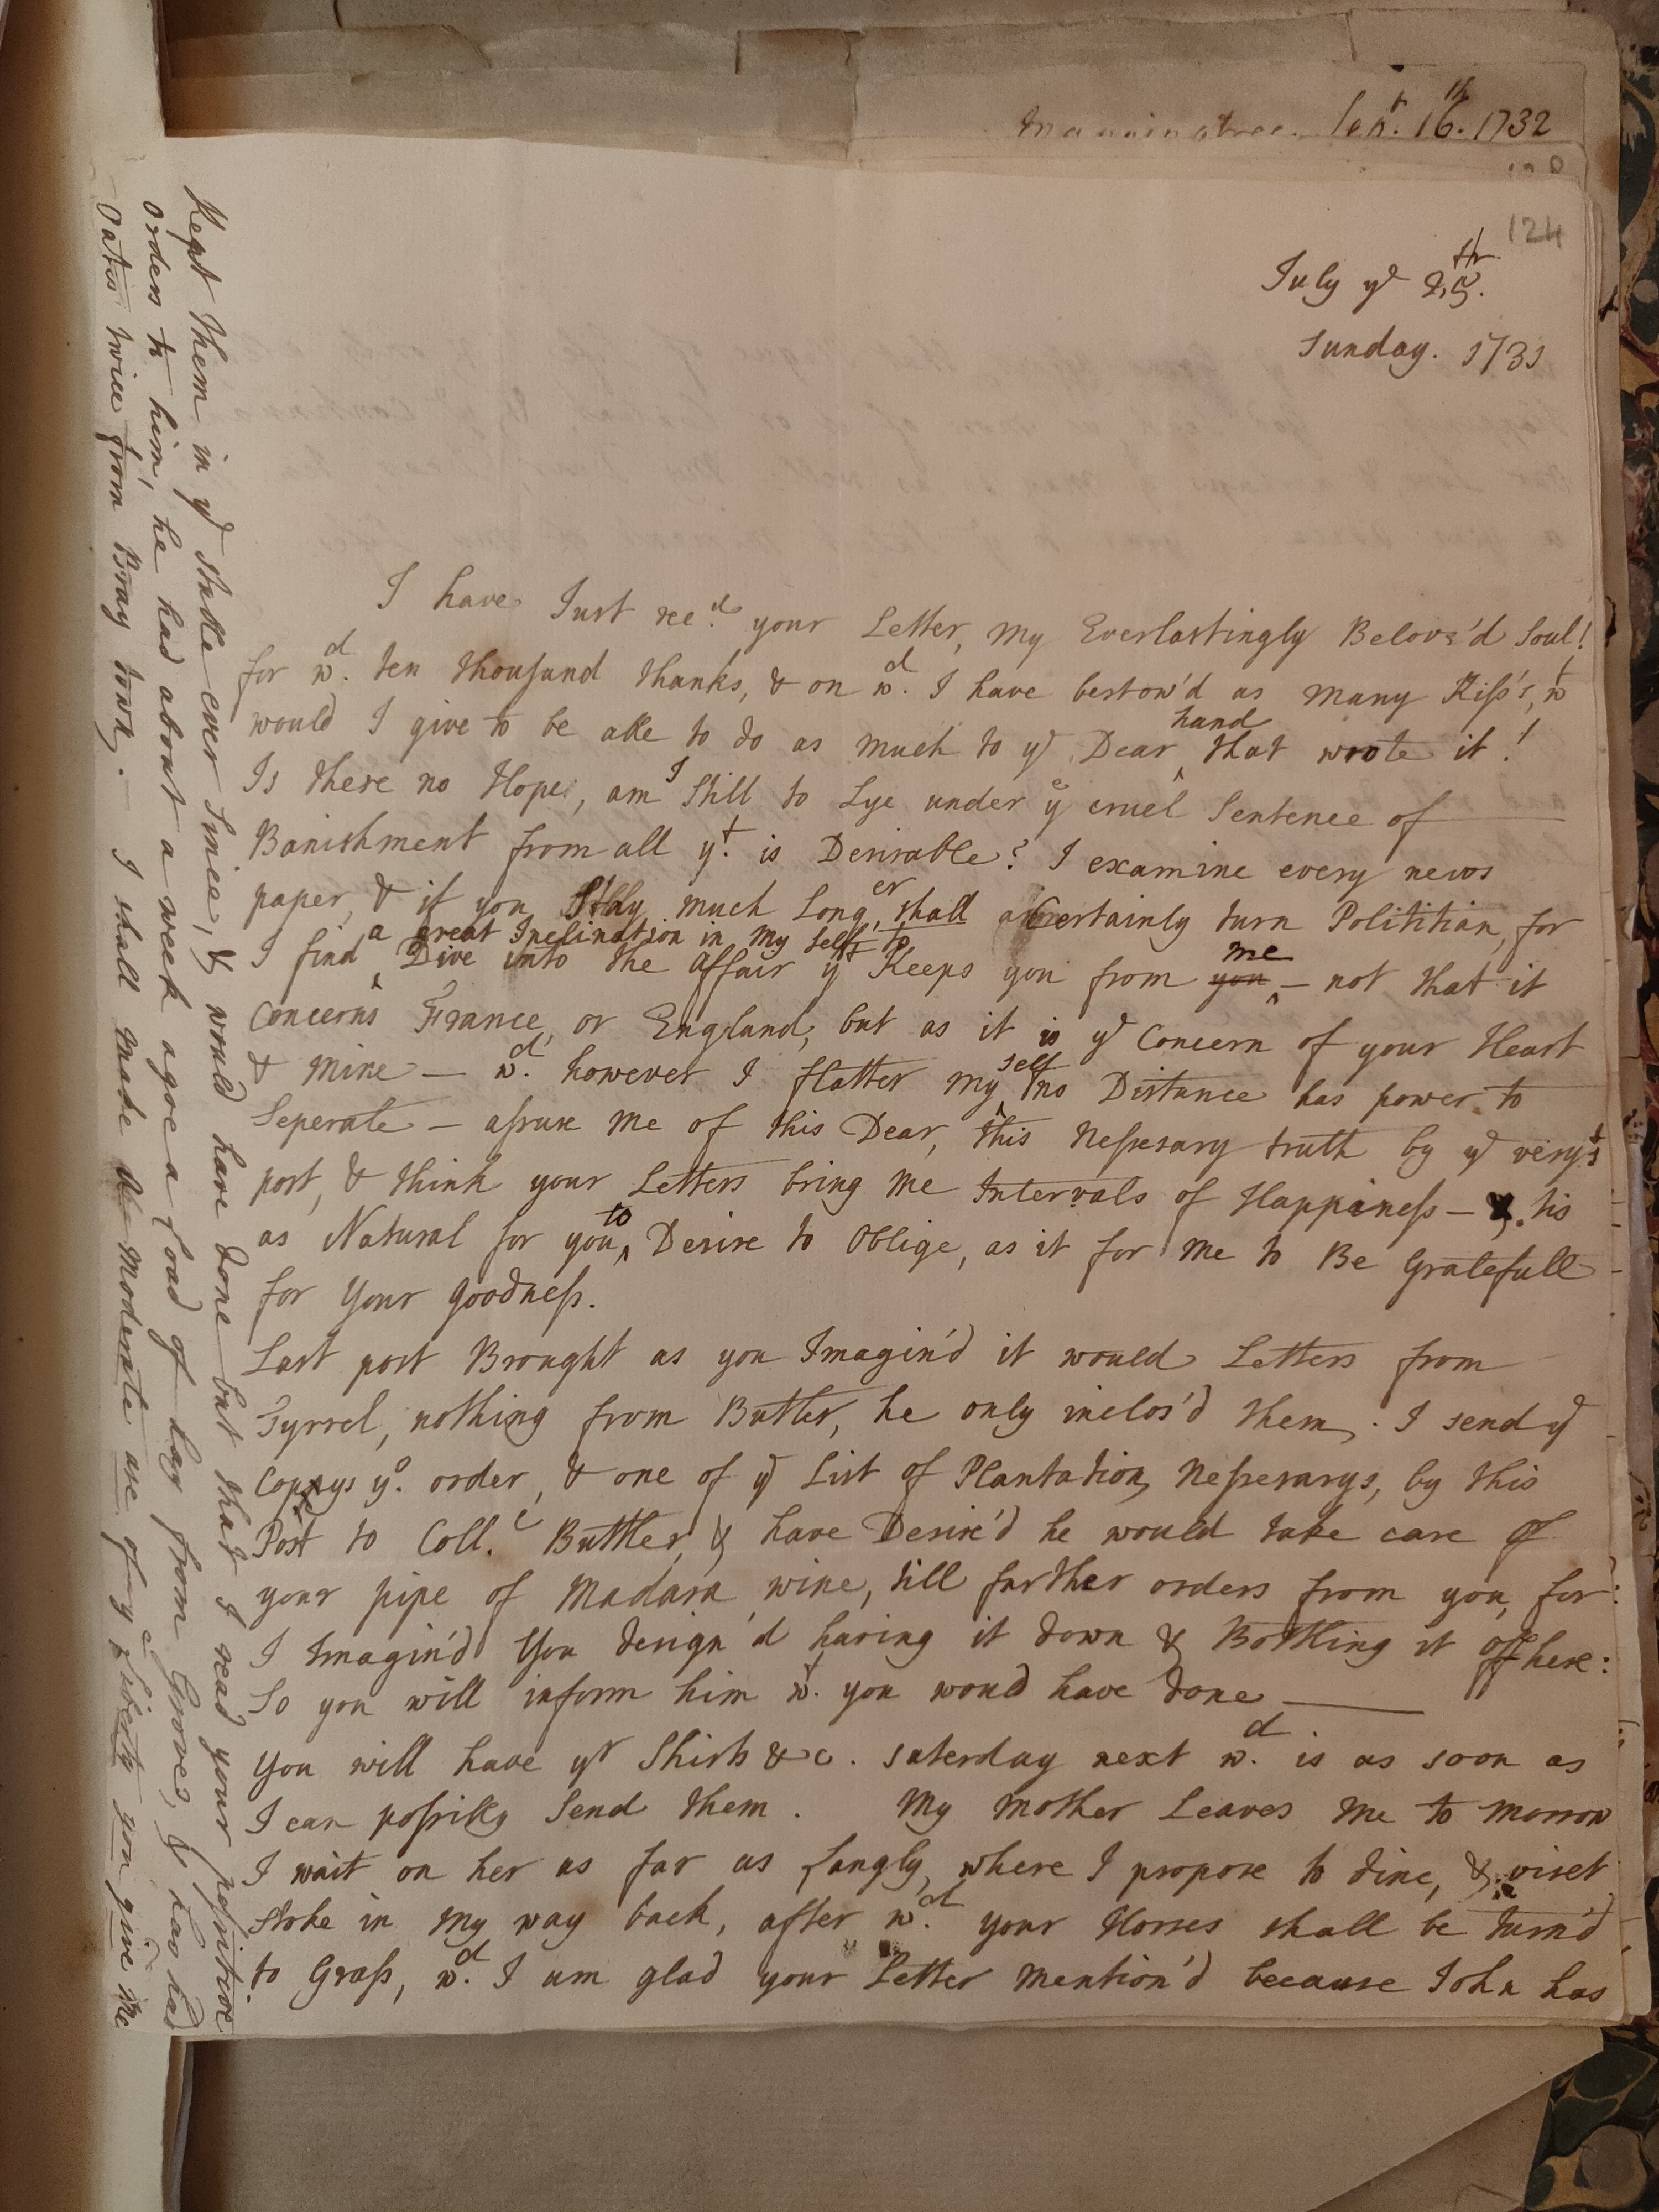 Sepr. 16th. 1732
124
July ye 25th.
Sunday. 1731
I have Just reed. your Letter, my Everlastingly Belov'd Soul!
for wd. ten thousand thanks, & on wd. I have bestow'd as many Kiss's, wt
would I give to be able to do as much to ye Dear hand that wrote it!
Is there no Hope, am I still to Lye under ye cruel Sentence of
Banishment from all yt. is Desirable? I examine every news
paper, & if you Stay much Longer, shall Certainly turn Polititian, for
I find a great Inclination in my self to Dive into the Affair yt Keeps you from you me - not that it
Concerns France, or England, but as it is ye Concern of your Heart
& Mine — wd. however I flatter my self no Distance has power to
Seperate — assure me of this Dear, this Nessesary truth by ye very 1st
post, & think your Letters bring me Intervals of Happiness — tis
as Natural for you to Desire to Oblige, as it for me to Be Gratefull
for Your Goodness.
Last post Brought as you Imagin'd it would Letters from
Tyrrel, nothing from Butler, he only inclos'd them. I send ye
Coppys yo. order, & one of ye List of Plantation Nessesarys, by this
Post to Coll. Buttler, & have Desire'd he would take care of
your pipe of Madara wine, till further orders from you, for
I Imagin'd You design'd having it down & Bottling it off here:
So you will inform him wt. you would have done
You will have yr Shirts &c. saterday next wd. is as soon as
I can possibly Send them. My Mother Leaves me to morrow
I wait on her as far as Langly, where I propose to dine, & viset
Stoke in my way back, after wd. your Horses shall be turn'd
to Grass, wd. I am glad your Letter mention'd because John has
Kept them in ye stable ever since, & would have done but that I read your positive
orders to him, he had about a week agoe a load of hay from Groves, & has had
Oates twice from Bray town. — I shall make a Moderate use of ye Liberty you give me